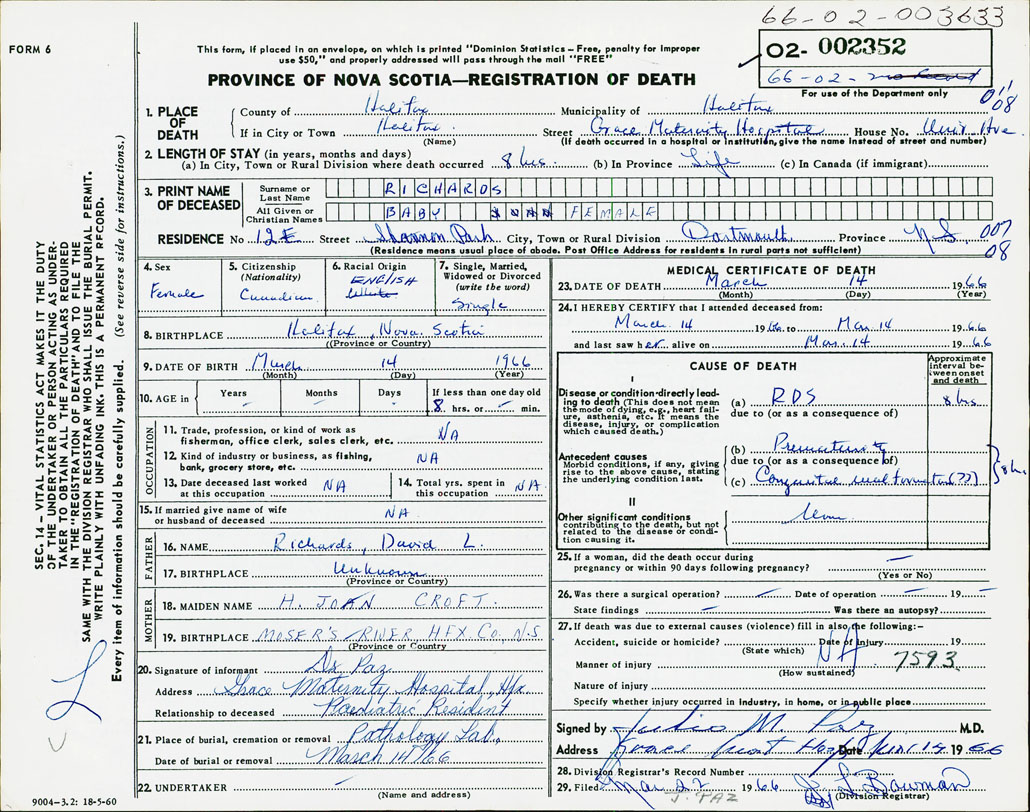 66-02-003633
FORM 6
This form, if placed in an envelope, on which is printed "Dominion Statistics – Free, penalty for improper
use $50," and properly addressed will pass through the mail "FREE"
PROVINCE OF NOVA SCOTIA—REGISTRATION OF DEATH
02- 002352
66-02-
For use of the Department only
1. PLACE OF DEATH
County of Halifax Municipality of Halifax 011 08
If in City or Town Halifax Street Grace Maternity Hospital House No. Univ Ave
(Name) (If death occurred in a hospital or institution, give the name instead of street and number)
2. LENGTH OF STAY (in years, months and days)
(a) In City, Town or Rural Division where death occurred 8 hrs. (b) In Province Life (c) In Canada (if immigrant)
3. PRINT NAME OF DECEASED
Surname or Last Name RICHARDS
All Given or Christian Names BABY FEMALE
RESIDENCE No 12E Street Shannon Park City, Town or Rural Division Dartmouth Province N S 007 08
(Residence means usual place of abode. Post Office Address for residents in rural parts not sufficient)
4. Sex Female
5. Citizenship (Nationality) Canadian
6. Racial Origin ENGLISH White
7. Single, Married, Widowed or Divorced (write the word) Single
8. BIRTHPLACE Halifax, Nova Scotia
(Province or Country)
9. DATE OF BIRTH March 14 1966
(Month) (Day) (Year)
10. AGE in Years – Months – Days – If less than one day old 8 hrs. or – min.
OCCUPATION
11. Trade, profession, or kind of work as fisherman, office clerk, sales clerk, etc. NA
12. Kind of industry or business, as fishing, bank, grocery store, etc. NA
13. Date deceased last worked at this occupation NA 14. Total yrs. spent in this occupation NA
15. If married give name of wife or husband of deceased NA
FATHER
16. NAME Richards, David L.
17. BIRTHPLACE Unknown
(Province or Country)
MOTHER
18. MAIDEN NAME H. JOAN CROFT.
19. BIRTHPLACE MOSER'S RIVER HFX Co. N.S
(Province or Country)
20. Signature of informant Dr Paz
Address Grace Maternity Hospital, Hfx
Relationship to deceased Paediatric Resident
21. Place of burial, cremation or removal Pathology Lab,
Date of burial or removal March 14 '66
22. UNDERTAKER –
(Name and address)
9004-3.2: 18-5-60
MEDICAL CERTIFICATE OF DEATH
23. DATE OF DEATH March 14 1966
(Month) (Day) (Year)
24. I HEREBY CERTIFY that I attended deceased from:
March 14 1966 to Mar. 14 1966
and last saw her alive on Mar. 14 1966
CAUSE OF DEATH
Approximate interval between onset and death
I
Disease or condition directly leading to death (This does not mean the mode of dying, e.g., heart failure, asthenia, etc. It means the disease, injury, or complication which caused death.)
(a) RDS 8 hrs
due to (or as a consequence of)
Antecedent causes
Morbid conditions, if any, giving rise to the above cause, stating the underlying condition last.
(b) Prematurity
due to (or as a consequence of)
(c) Congenital malformation (??) 8 hrs
II
Other significant conditions
contributing to the death, but not related to the disease or condition causing it.
25. If a woman, did the death occur during pregnancy or within 90 days following pregnancy? –
(Yes or No)
26. Was there a surgical operation? – Date of operation – 19 –
State findings – Was there an autopsy?
27. If death was due to external causes (violence) fill in also the following:–
Accident, suicide or homicide? Date of injury 19
(State which) NA 7593
Manner of injury
(How sustained)
Nature of injury
Specify whether injury occurred in Industry, in home, or in public place
Signed by Julio M. Paz M.D.
Address Grace Mat Hosp Date Mar. 14 1966
28. Division Registrar's Record Number
29. Filed Mar 22 1966 Bowman
J. PAZ (Division Registrar)
SEC. 14 – VITAL STATISTICS ACT MAKES IT THE DUTY
OF THE UNDERTAKER OR PERSON ACTING AS UNDER-
TAKER TO OBTAIN ALL THE PARTICULARS REQUIRED
IN THE "REGISTRATION OF DEATH" AND TO FILE THE
SAME WITH THE DIVISION REGISTRAR WHO SHALL ISSUE THE BURIAL PERMIT.
WRITE PLAINLY WITH UNFADING INK. THIS IS A PERMANENT RECORD.
Every item of information should be carefully supplied. (See reverse side for instructions.)